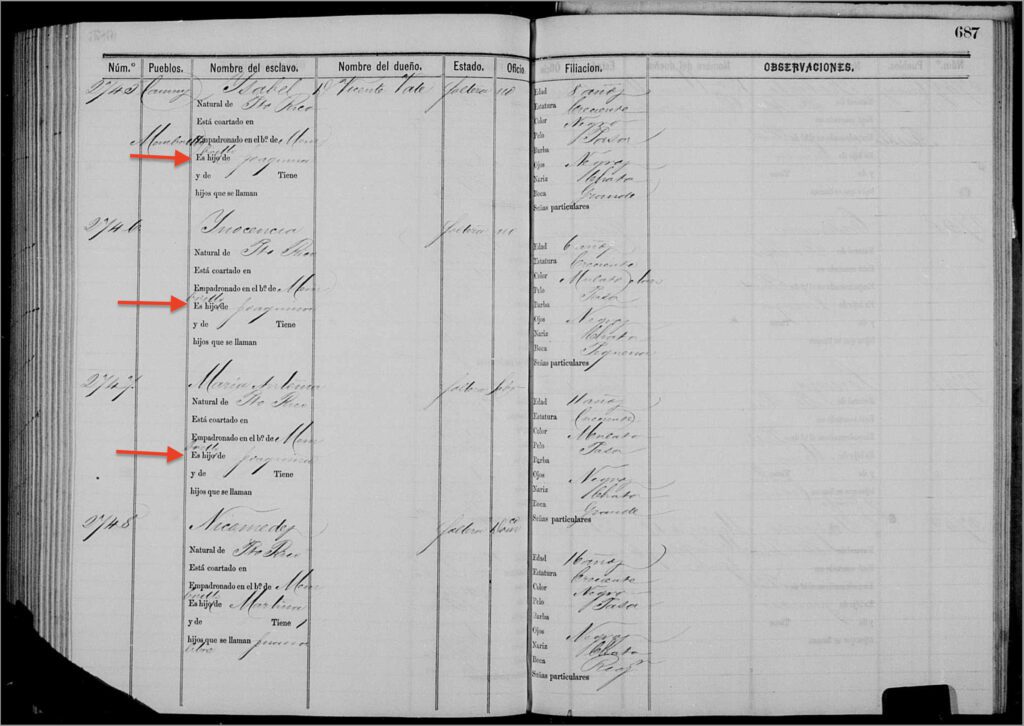 687
Núm.º Pueblos. Nombre del esclavo. Nombre del dueño. Estado. Oficio Filiacion. OBSERVACIONES.
2745 Camuy Isabel Dn Vicente Vale soltera
Natural de Pto Rico
Está coartado en
Empadronado en el bº. de Mem
Es hijo de Joaquina
y de Tiene
hijos que se llaman
Edad 8 años
Estatura Creciente
Color Negro
Pelo Pasa
Barba
Ojos Negros
Nariz Chata
Boca Grande
Señas particulares
2746 Inocencia soltera
Natural de Pto Rico
Está coartado en
Empadronado en el bº. de Mem
Es hijo de Joaquina
y de Tiene
hijos que se llaman
Edad 6 años
Estatura Creciente
Color Mulato
Pelo Pasa
Barba
Ojos Negros
Nariz Chata
Boca Pequeña
Señas particulares
2747 Maria Antonia soltera
Natural de Pto Rico
Está coartado en
Empadronado en el bº. de Mem
Es hijo de Joaquina
y de Tiene
hijos que se llaman
Edad 11 años
Estatura Creciente
Color Mulato
Pelo Pasa
Barba
Ojos Negros
Nariz Chata
Boca Grande
Señas particulares
2748 Nicamedes soltera
Natural de Pto Rico
Está coartado en
Empadronado en el bº. de Mem
Es hijo de Martina
y de Tiene 1
hijos que se llaman Juana
libre
Edad 16 años
Estatura Creciente
Color Negro
Pelo Pasa
Barba
Ojos Negros
Nariz Chata
Boca
Señas particulares